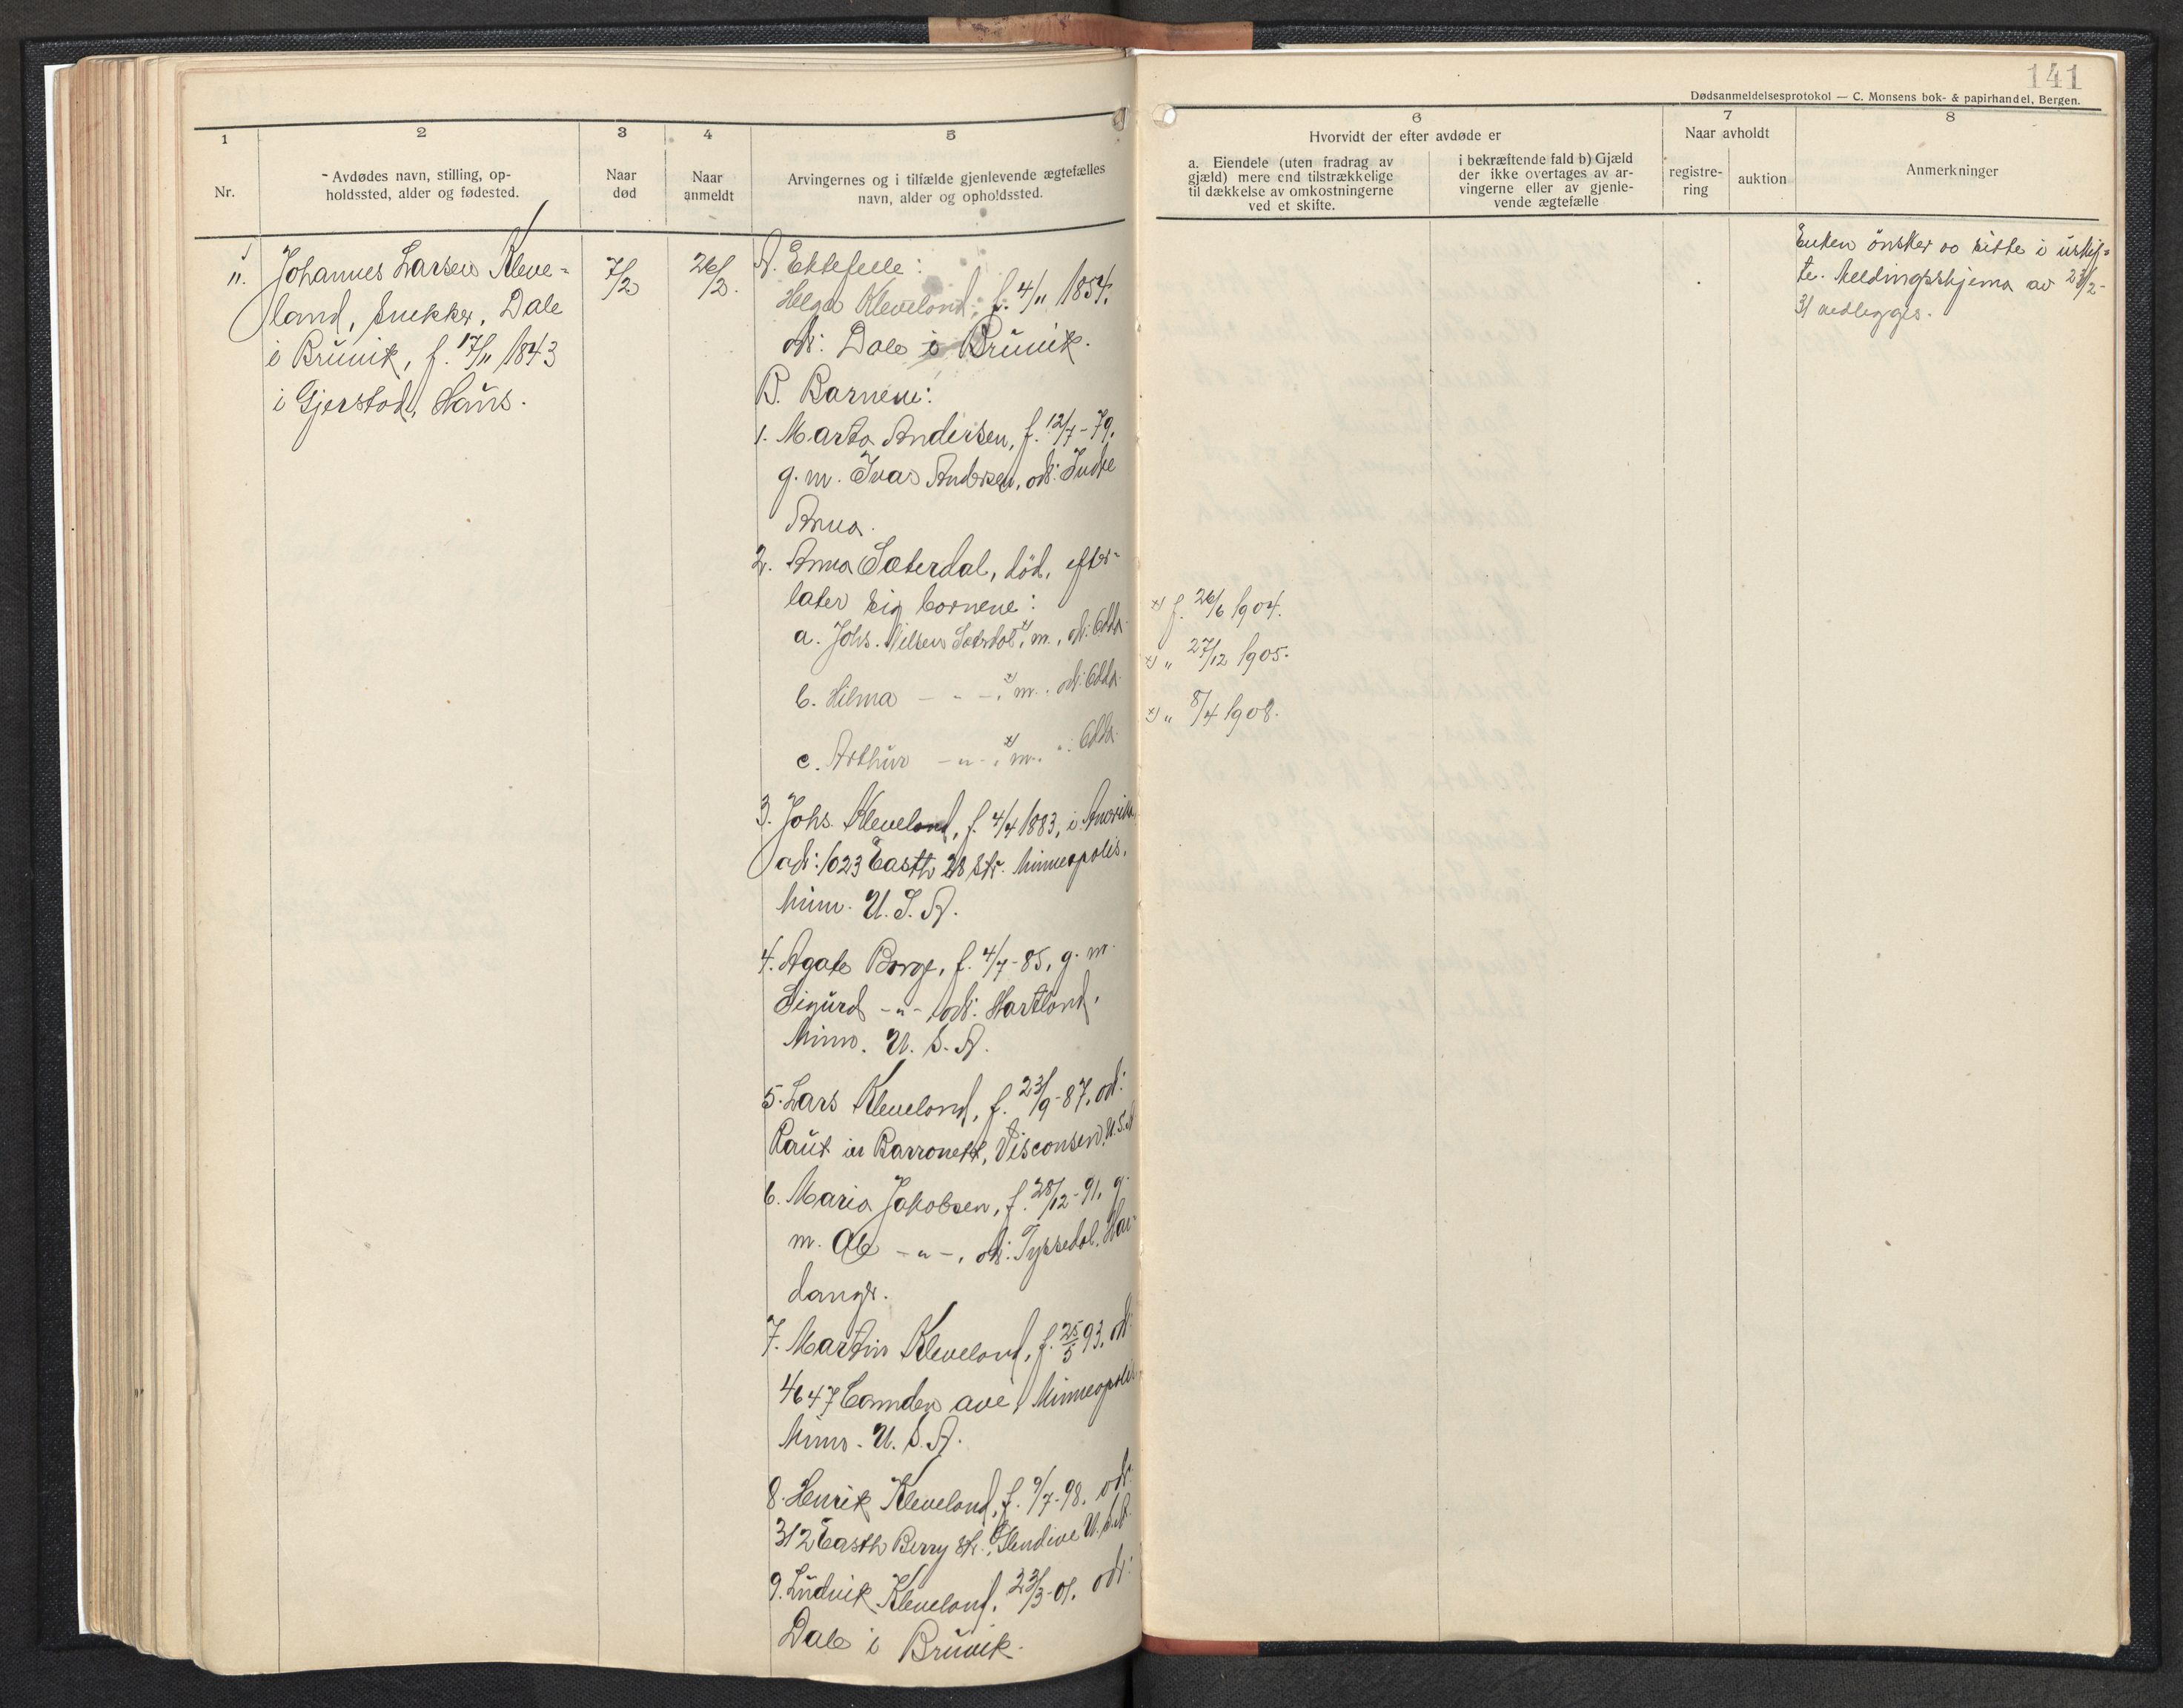 141
Dødsanmeldelsesprotokol — C. Monsens bok- & papirhandel, Bergen.
1
2
3
4
5
6
7
8
Nr.
Avdødes navn, stilling, op-
holdssted, alder og fødested.
Naar
død
Naar
anmeldt
Arvingernes og i tilfælde gjenlevende ægtefælles
navn, alder og opholdssted.
Hvorvidt der efter avdøde er
a. Eiendele (uten fradrag av
gjæld) mere end tilstrækkelige
til dækkelse av omkostningerne
ved et skifte.
i bekræftende fald b) Gjæld
der ikke overtages av ar-
vingerne eller av gjenle-
vende ægtefælle
Naar avholdt
registre-
ring
auktion
Anmerkninger
Johannes Larsen Kleve-
land, snekker, Dale
i Bruvik, f. 17/11 1843
i Gjerstad, Haus.
7/2
26/2.
A. Ektefelle:
Helga Kleveland, f. 4/11 1854.
adr: Dale i Bruvik.
B. Barnene:
1. Marta Andersen, f. 12/7-79.
g. m. Ivar Andersen, adr: Indre
Arna.
2. Anna Sæterdal, død, efter-
later sig barnene:
a. Johs. Nilsen Sæterdal x), m., adr: Odda.
b. Hilma - " - , x) m., adr: Odda.
c. Arthur - " - , x) m. " : Odda.
3. Johs. Kleveland, f. 4/4 1883, i Amerika,
adr: 1023 Easth 28 Str. Minneapolis,
Minn. U. S. A.
4. Agate Borge, f. 4/7-85, g. m.
Sigurd - " - , adr: Hartland,
Minn. U. S. A.
5. Lars Kleveland, f. 23/9-87, adr:
Raut in Barronett, Visconsin, U.S.A
6. Maria Jakobsen, f. 28/12-91, g.
m. Ole - " - , adr: Tyssedal, Har-
danger.
7. Martin Kleveland, f. 25/5 93, adr:
4647 Camden ave, Minneapolis
Minn. U. S. A.
8. Henrik Kleveland, f. 9/7-98. adr:
312 Easth Berry Str., Glendive U.S.A.
9. Ludvik Kleveland, 23/3-01, adr:
Dale i Bruvik.
x) f. 26/6 1904.
x) " 27/12 1905.
x) " 8/4 1908.
Enken ønsker as sitte i uskif-
te. Meldingsskjema av 23/2-
31 vedlegges.